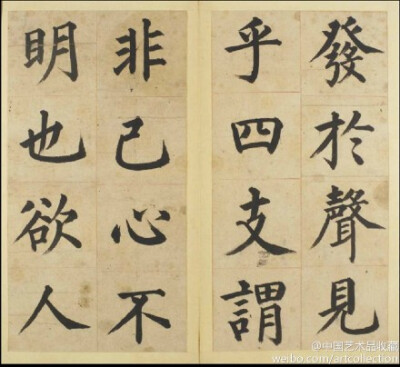 發於聲見
乎四支謂
非己心不
明也欲人
@中国艺术品收藏
weibo.com/artcollection